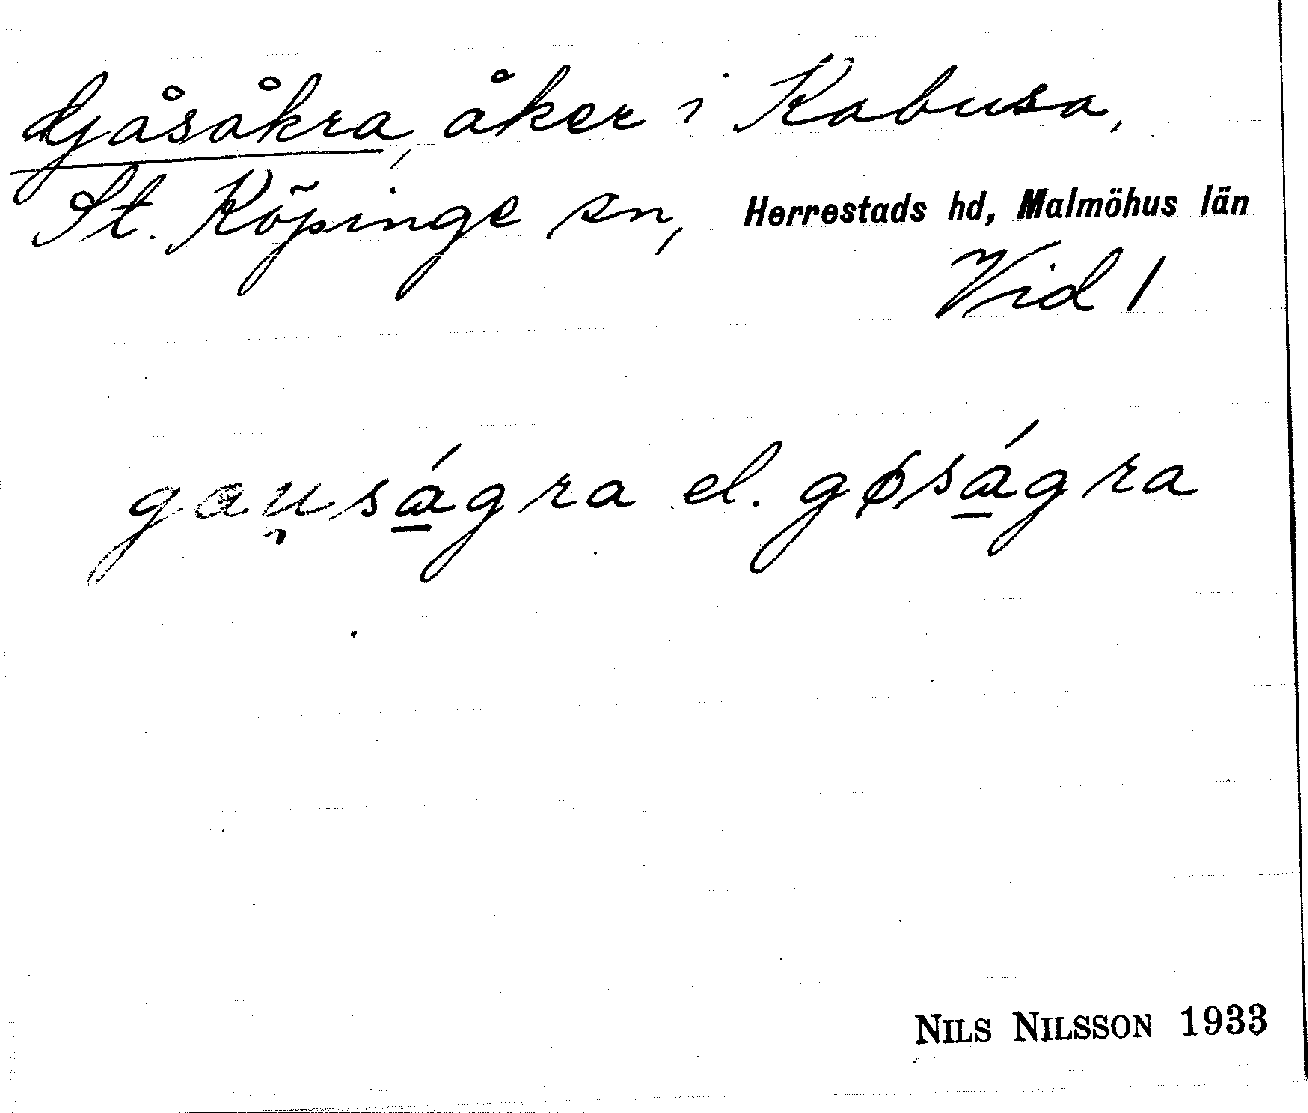 Gjåsåkra, åker i Kabusa,
St. Köpinge sn, Herrestads hd, Malmöhus län
Vid 1
gauságra el. gøságra
NILS NILSSON 1933